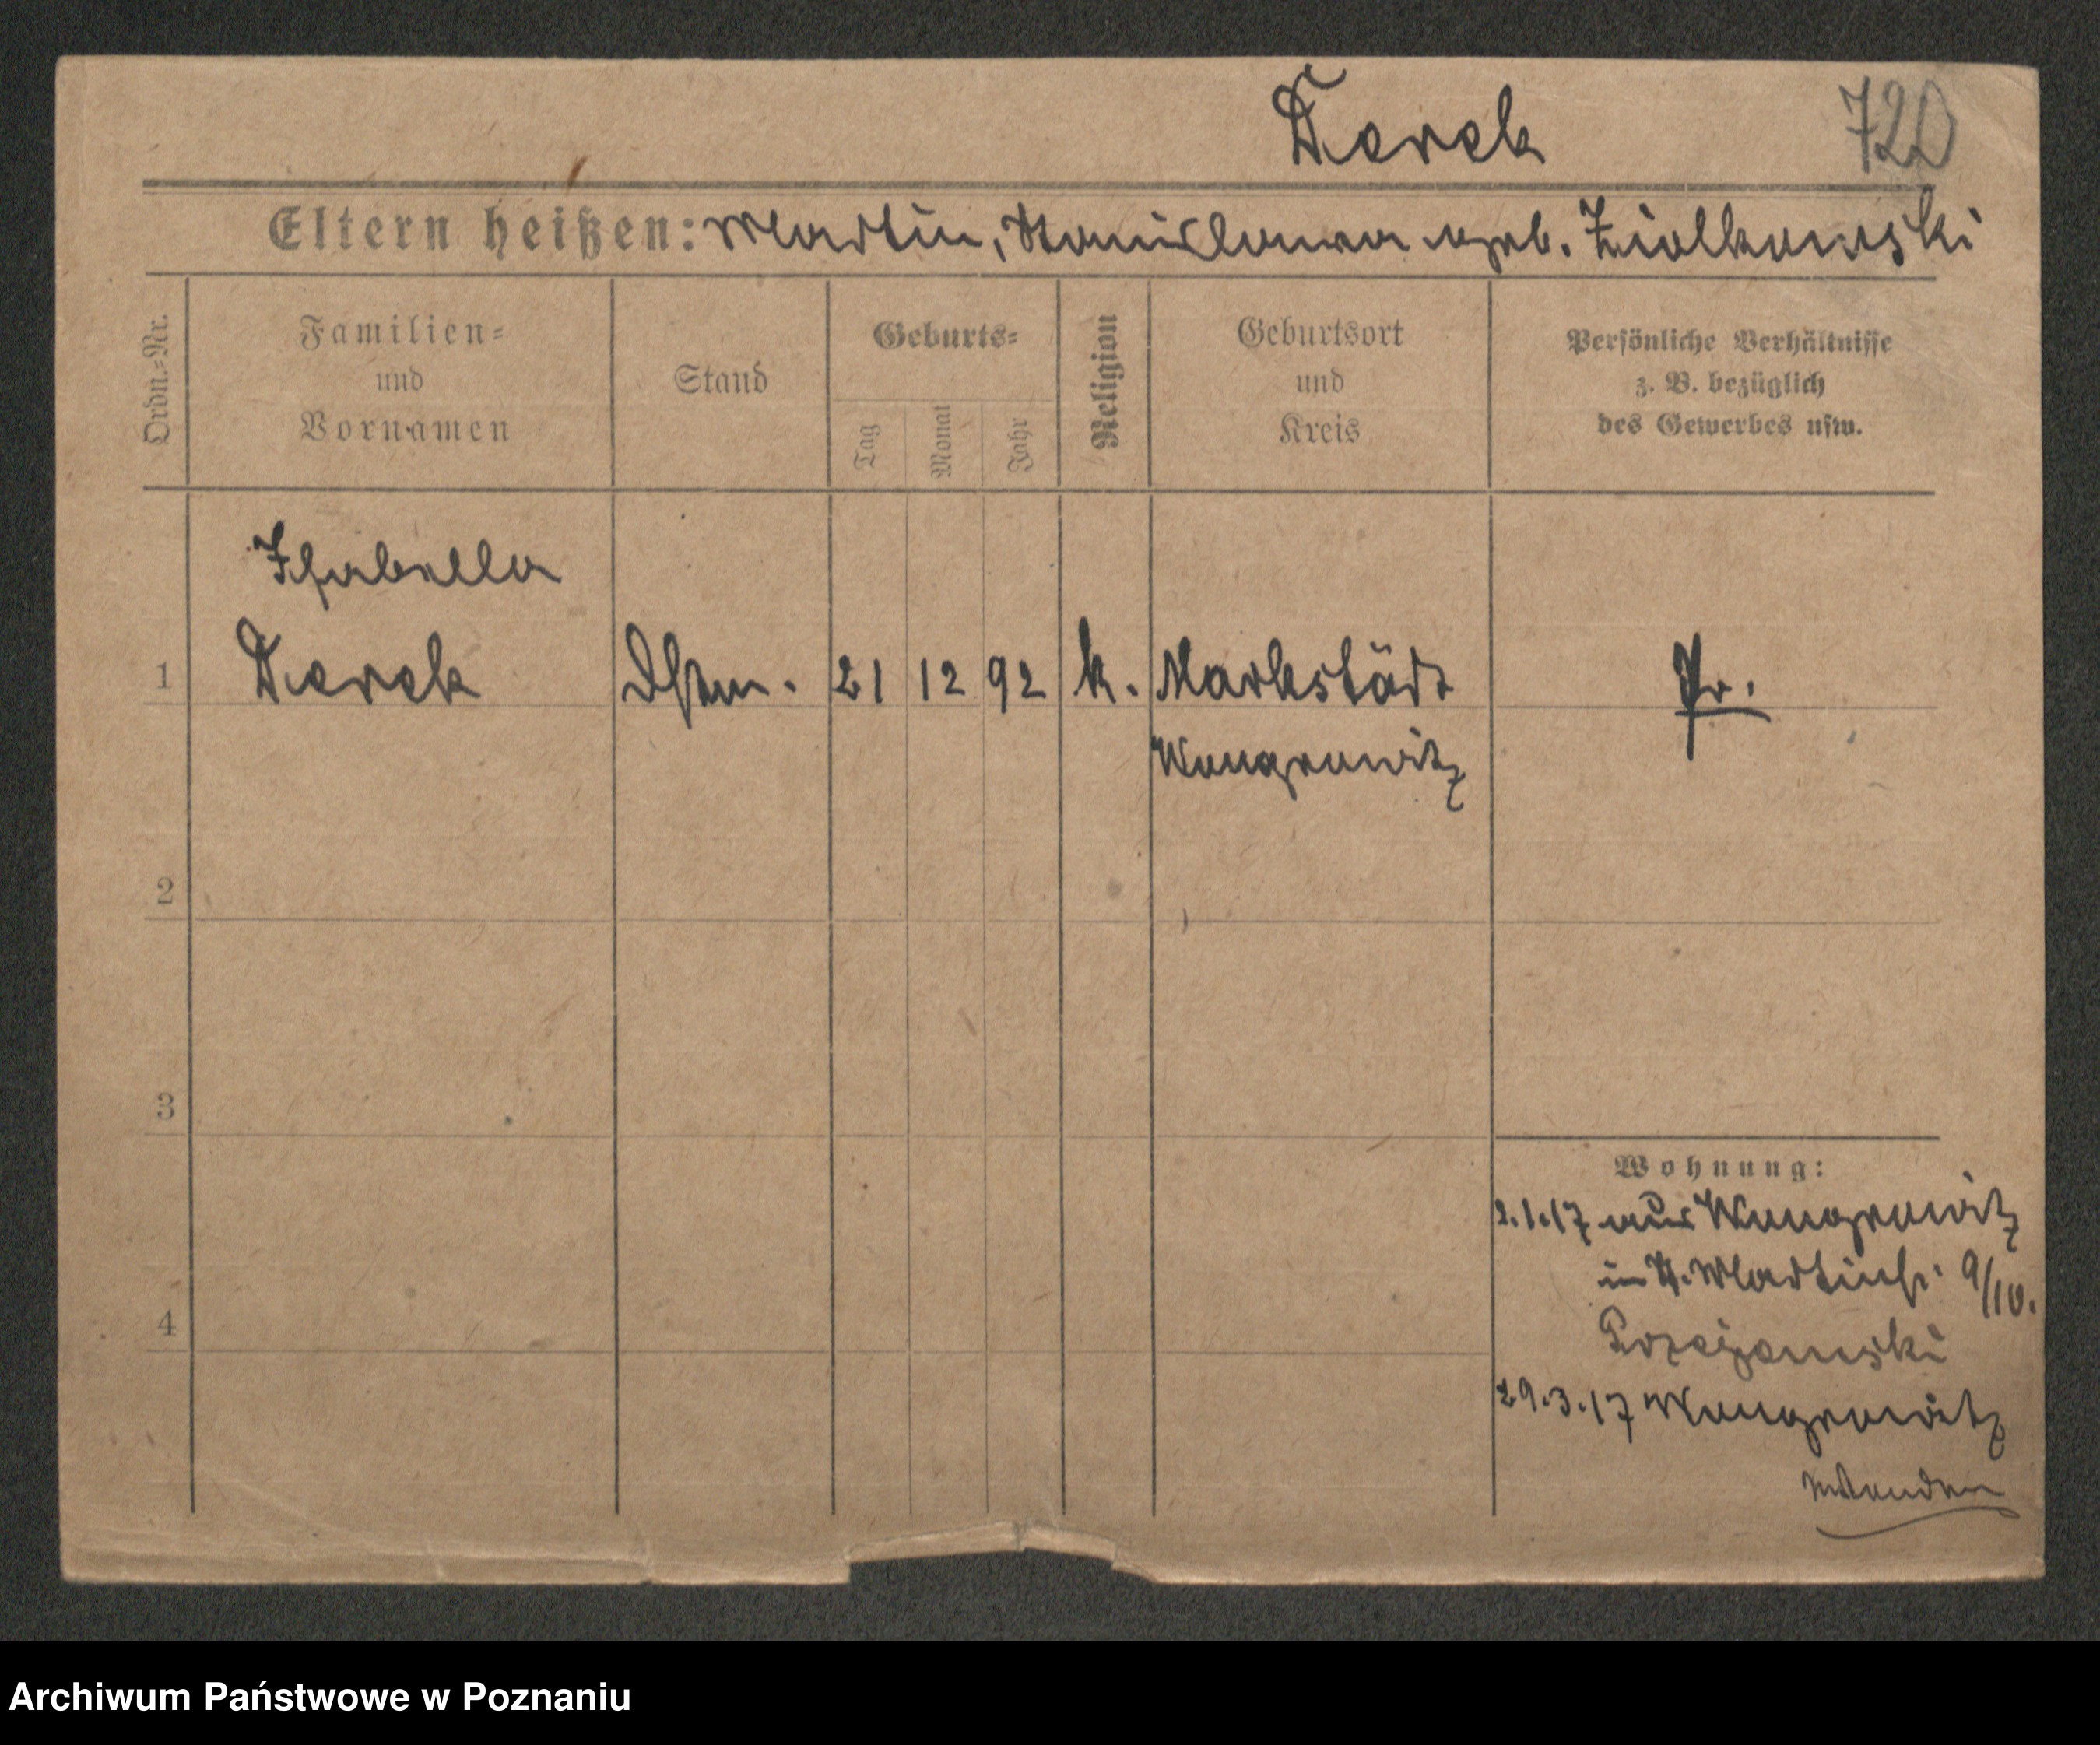 Derek
720
Eltern heißen: Martin, Stanislawa geb. Ziolkowski
Ordn.-Nr.
Familien-
und
Vornamen
Stand
Geburts-
Tag
Monat
Jahr
Religion
Geburtsort
und
Kreis
Persönliche Verhältnisse
z. B. bezüglich
des Gewerbes usw.
Isabella
1 Derek 21 12 92 k. Markstädt Pr.
Wongrowitz
2
3
4
Wohnung:
2.1.17 aus Wongrowitz
in St. Martinstr. 9/10.
29.3.17 Wongrowitz
Wenden
Archiwum Państwowe w Poznaniu